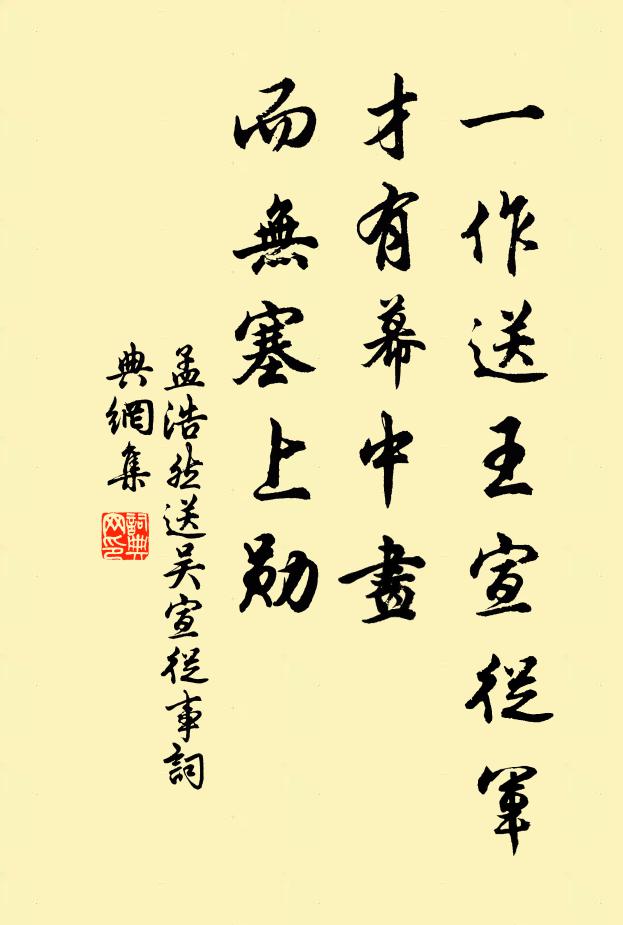 一作送王宣從軍
才有幕中畫
而無塞上勛
孟浩然送吴宣從事詞
典網集
詞典網印